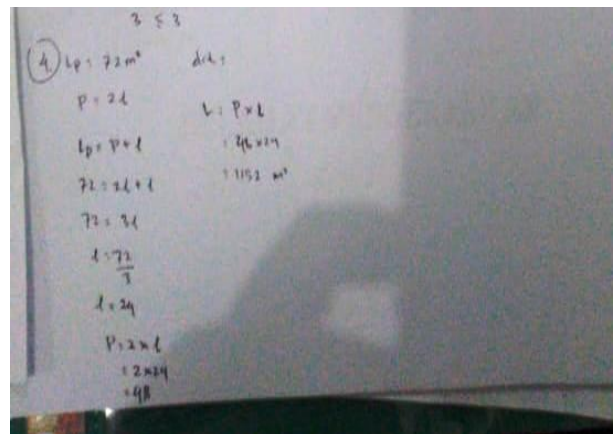 3 ≤ 3
4 Lp = 72 m²
P = 2l
Lp = P + l
72 = 2l + l
72 = 3l
l = 72/3
l = 24
P = 2 x l
= 2 x 24
= 48
dit :
L = P x l
= 48 x 24
= 1152 m²